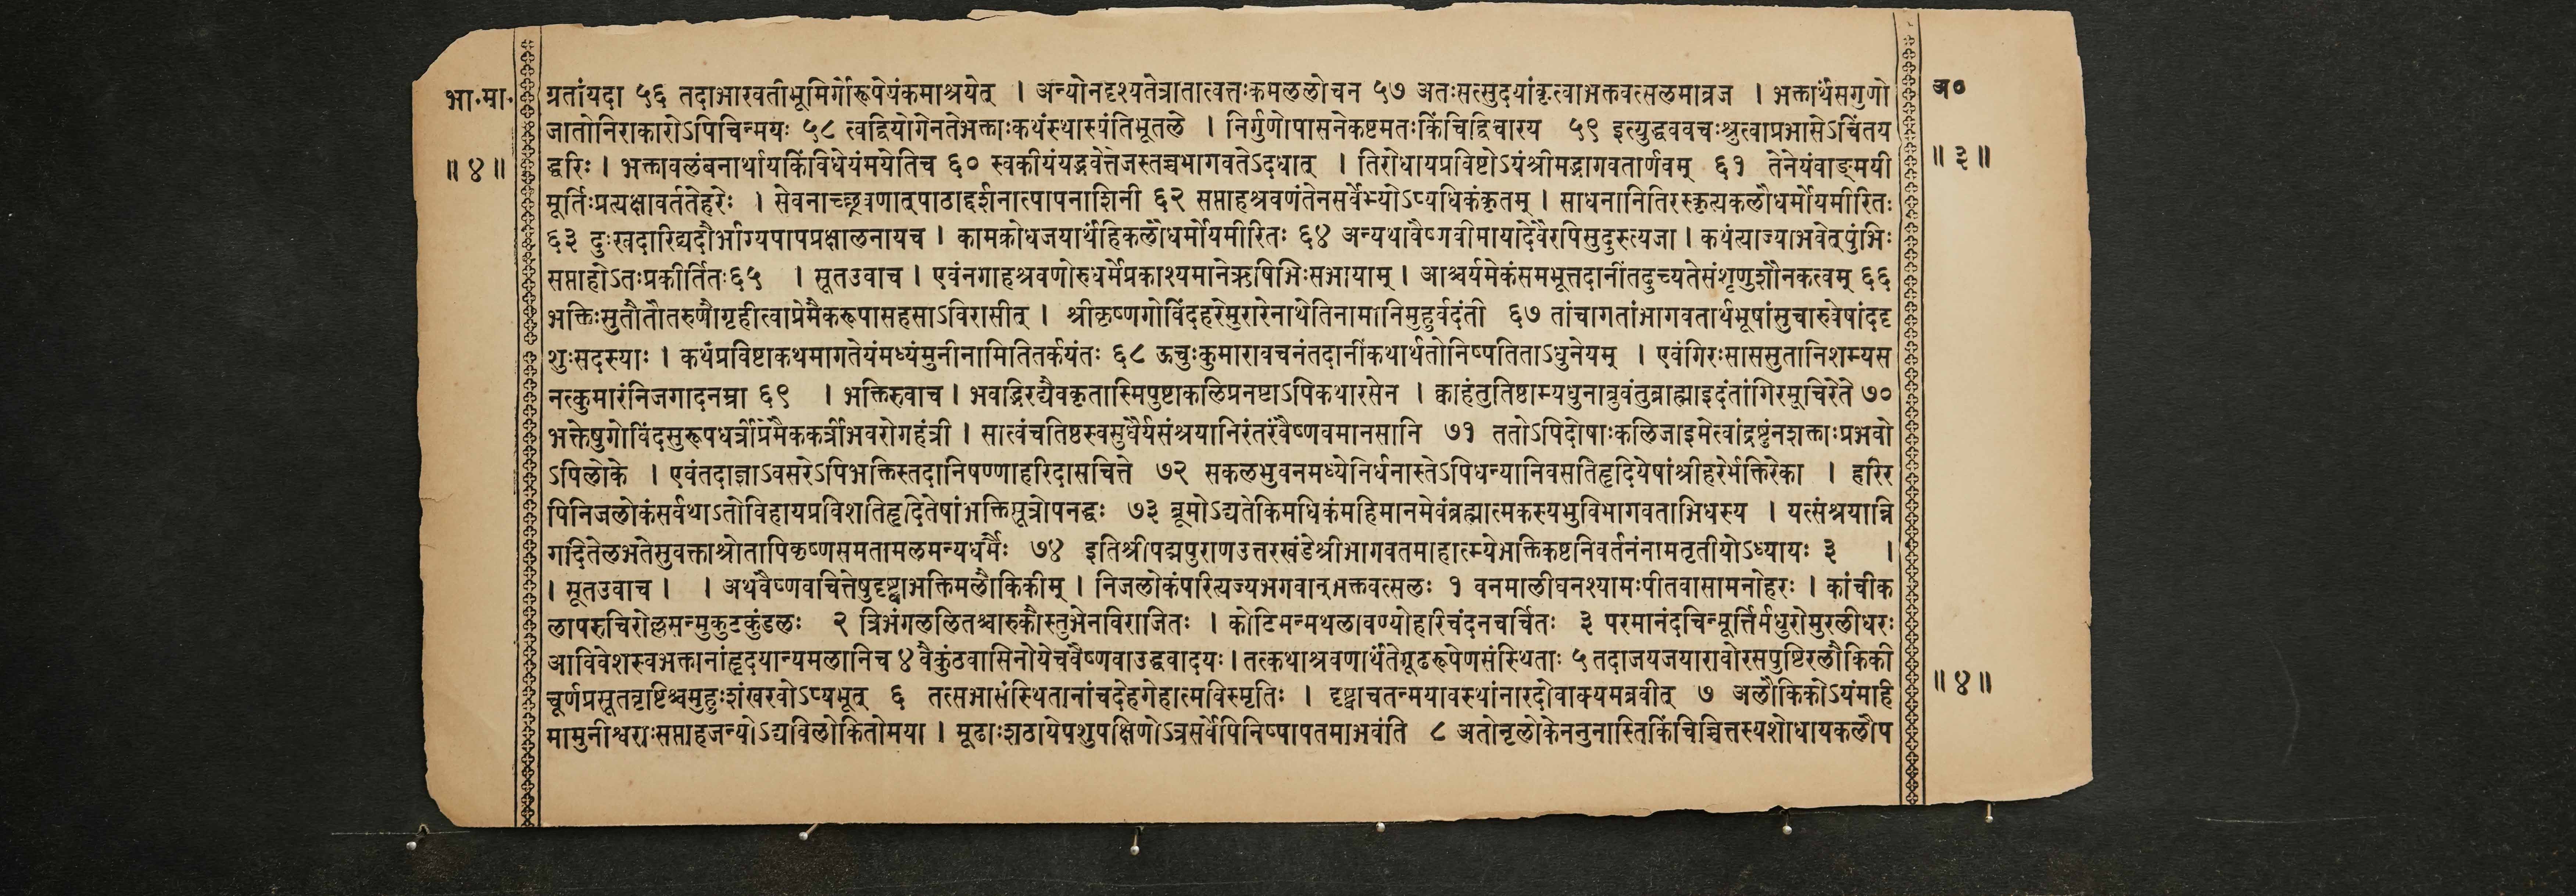 भा.मा.
॥ ४ ॥
ग्रतांयदा ५६ तदाभारवतीभूमिर्गोरूपेयंकमाश्रयेत् । अन्योनदृश्यतेत्रातात्वत्तःकमललोचन ५७ अतःसत्सुदयांकृत्वाभक्तवत्सलमाव्रज । भक्तार्थंसगुणो
जातोनिराकारोऽपिचिन्मयः ५८ त्वद्वियोगेनतेभक्ताःकथंस्थास्यंतिभूतले । निर्गुणोपासनेकष्टमतःकिंचिद्विचारय ५९ इत्युद्धववचःश्रुत्वाप्रभासेऽचिंतय
द्धरिः । भक्तावलंबनार्थायकिंविधेयंमयेतिच ६० स्वकीयंयद्भवेत्तेजस्तच्चभागवतेऽदधात् । तिरोधायप्रविष्टोऽयंश्रीमद्भागवतार्णवम् ६१ तेनेयंवाङ्मयी
मूर्तिःप्रत्यक्षावर्ततेहरेः । सेवनाच्छ्रवणात्पाठाद्दर्शनात्पापनाशिनी ६२ सप्ताहश्रवणंतेनसर्वेभ्योऽप्यधिकंकृतम् । साधनानितिरस्कृत्यकलौधर्मोयमीरितः
६३ दुःखदारिद्र्यदौर्भाग्यपापप्रक्षालनायच । कामक्रोधजयार्थंहिकलौधर्मोयमीरितः ६४ अन्यथावैष्णवीमायादेवैरपिसुदुस्त्यजा । कथंत्याज्याभवेत्पुंभिः
सप्ताहोऽतःप्रकीर्तितः६५ । सूतउवाच । एवंनगाहश्रवणोरुधर्मेप्रकाश्यमानेऋषिभिःसभायाम् । आश्चर्यमेकंसमभूत्तदानींतदुच्यतेसंशृणुशौनकत्वम् ६६
भक्तिःसुतौतौतरुणौगृहीत्वाप्रेमैकरूपासहसाऽविरासीत् । श्रीकृष्णगोविंदहरेमुरारेनाथेतिनामानिमुहुर्वदंती ६७ तांचागतांभागवतार्थभूषांसुचारुवेषांददृ
शुःसदस्याः । कथंप्रविष्टाकथमागतेयंमध्यंमुनीनामितितर्कयंतः ६८ ऊचुःकुमारावचनंतदानींकथार्थतोनिष्पतिताऽधुनेयम् । एवंगिरःसाससुतानिशम्यस
नत्कुमारंनिजगादनम्रा ६९ । भक्तिरुवाच । भवद्भिरद्यैवकृतास्मिपुष्टाकलिप्रनष्टाऽपिकथारसेन । क्वाहंतुतिष्ठाम्यधुनाब्रुवंतुब्राह्माइदंतांगिरमूचिरेते ७०
भक्तेषुगोविंदसुरूपधर्त्रीप्रेमैककर्त्रीभवरोगहंत्री । सात्वंचतिष्ठस्वसुधैर्यसंश्रयानिरंतरंवैष्णवमानसानि ७१ ततोऽपिदोषाःकलिजाइमेत्वांद्रष्टुंनशक्ताःप्रभवो
ऽपिलोके । एवंतदाज्ञाऽवसरेऽपिभक्तिस्तदानिषण्णाहरिदासचित्ते ७२ सकलभुवनमध्येनिर्धनास्तेऽपिधन्यानिवसतिहृदियेषांश्रीहरेर्भक्तिरेका । हरिर
पिनिजलोकंसर्वथाऽतोविहायप्रविशतिहृदितेषांभक्तिसूत्रोपनद्धः ७३ ब्रूमोऽद्यतेकिमधिकंमहिमानमेवंब्रह्मात्मकस्यभुविभागवताभिधस्य । यत्संश्रयान्नि
गदितेलभतेसुवक्ताश्रोतापिकृष्णसमतामलमन्यधर्मैः ७४ इतिश्रीपद्मपुराणउत्तरखंडेश्रीभागवतमाहात्म्येभक्तिकष्टनिवर्तनंनामतृतीयोऽध्यायः ३ ।
। सूतउवाच । । अथवैष्णवचित्तेषुदृष्ट्वाभक्तिमलौकिकीम् । निजलोकंपरित्यज्यभगवान्भक्तवत्सलः १ वनमालीघनश्यामःपीतवासामनोहरः । कांचीक
लापरुचिरोल्लसन्मुकुटकुंडलः २ त्रिभंगललितश्चारुकौस्तुभेनविराजितः । कोटिमन्मथलावण्योहरिचंदनचर्चितः ३ परमानंदचिन्मूर्त्तिर्मधुरोमुरलीधरः
आविवेशस्वभक्तानांहृदयान्यमलानिच ४ वैकुंठवासिनोयेचवैष्णवाउद्धवादयः । तत्कथाश्रवणार्थंतेगूढरूपेणसंस्थिताः ५ तदाजयजयारावोरसपुष्टिरलौकिकी
चूर्णप्रसूनवृष्टिश्चमुहुःशंखरवोऽप्यभूत् ६ तत्सभासंस्थितानांचदेहगेहात्मविस्मृतिः । दृष्ट्वाचतन्मयावस्थांनारदोवाक्यमब्रवीत् ७ अलौकिकोऽयंमहि
मामुनीश्वराःसप्ताहजन्योऽद्यविलोकितोमया । मूढाःशठायेपशुपक्षिणोऽत्रसर्वेपिनिष्पापतमाभवंति ८ अतोनृलोकेननुनास्तिकिंचिच्चित्तस्यशोधायकलौप
अ०
॥ ३ ॥
॥ ४ ॥